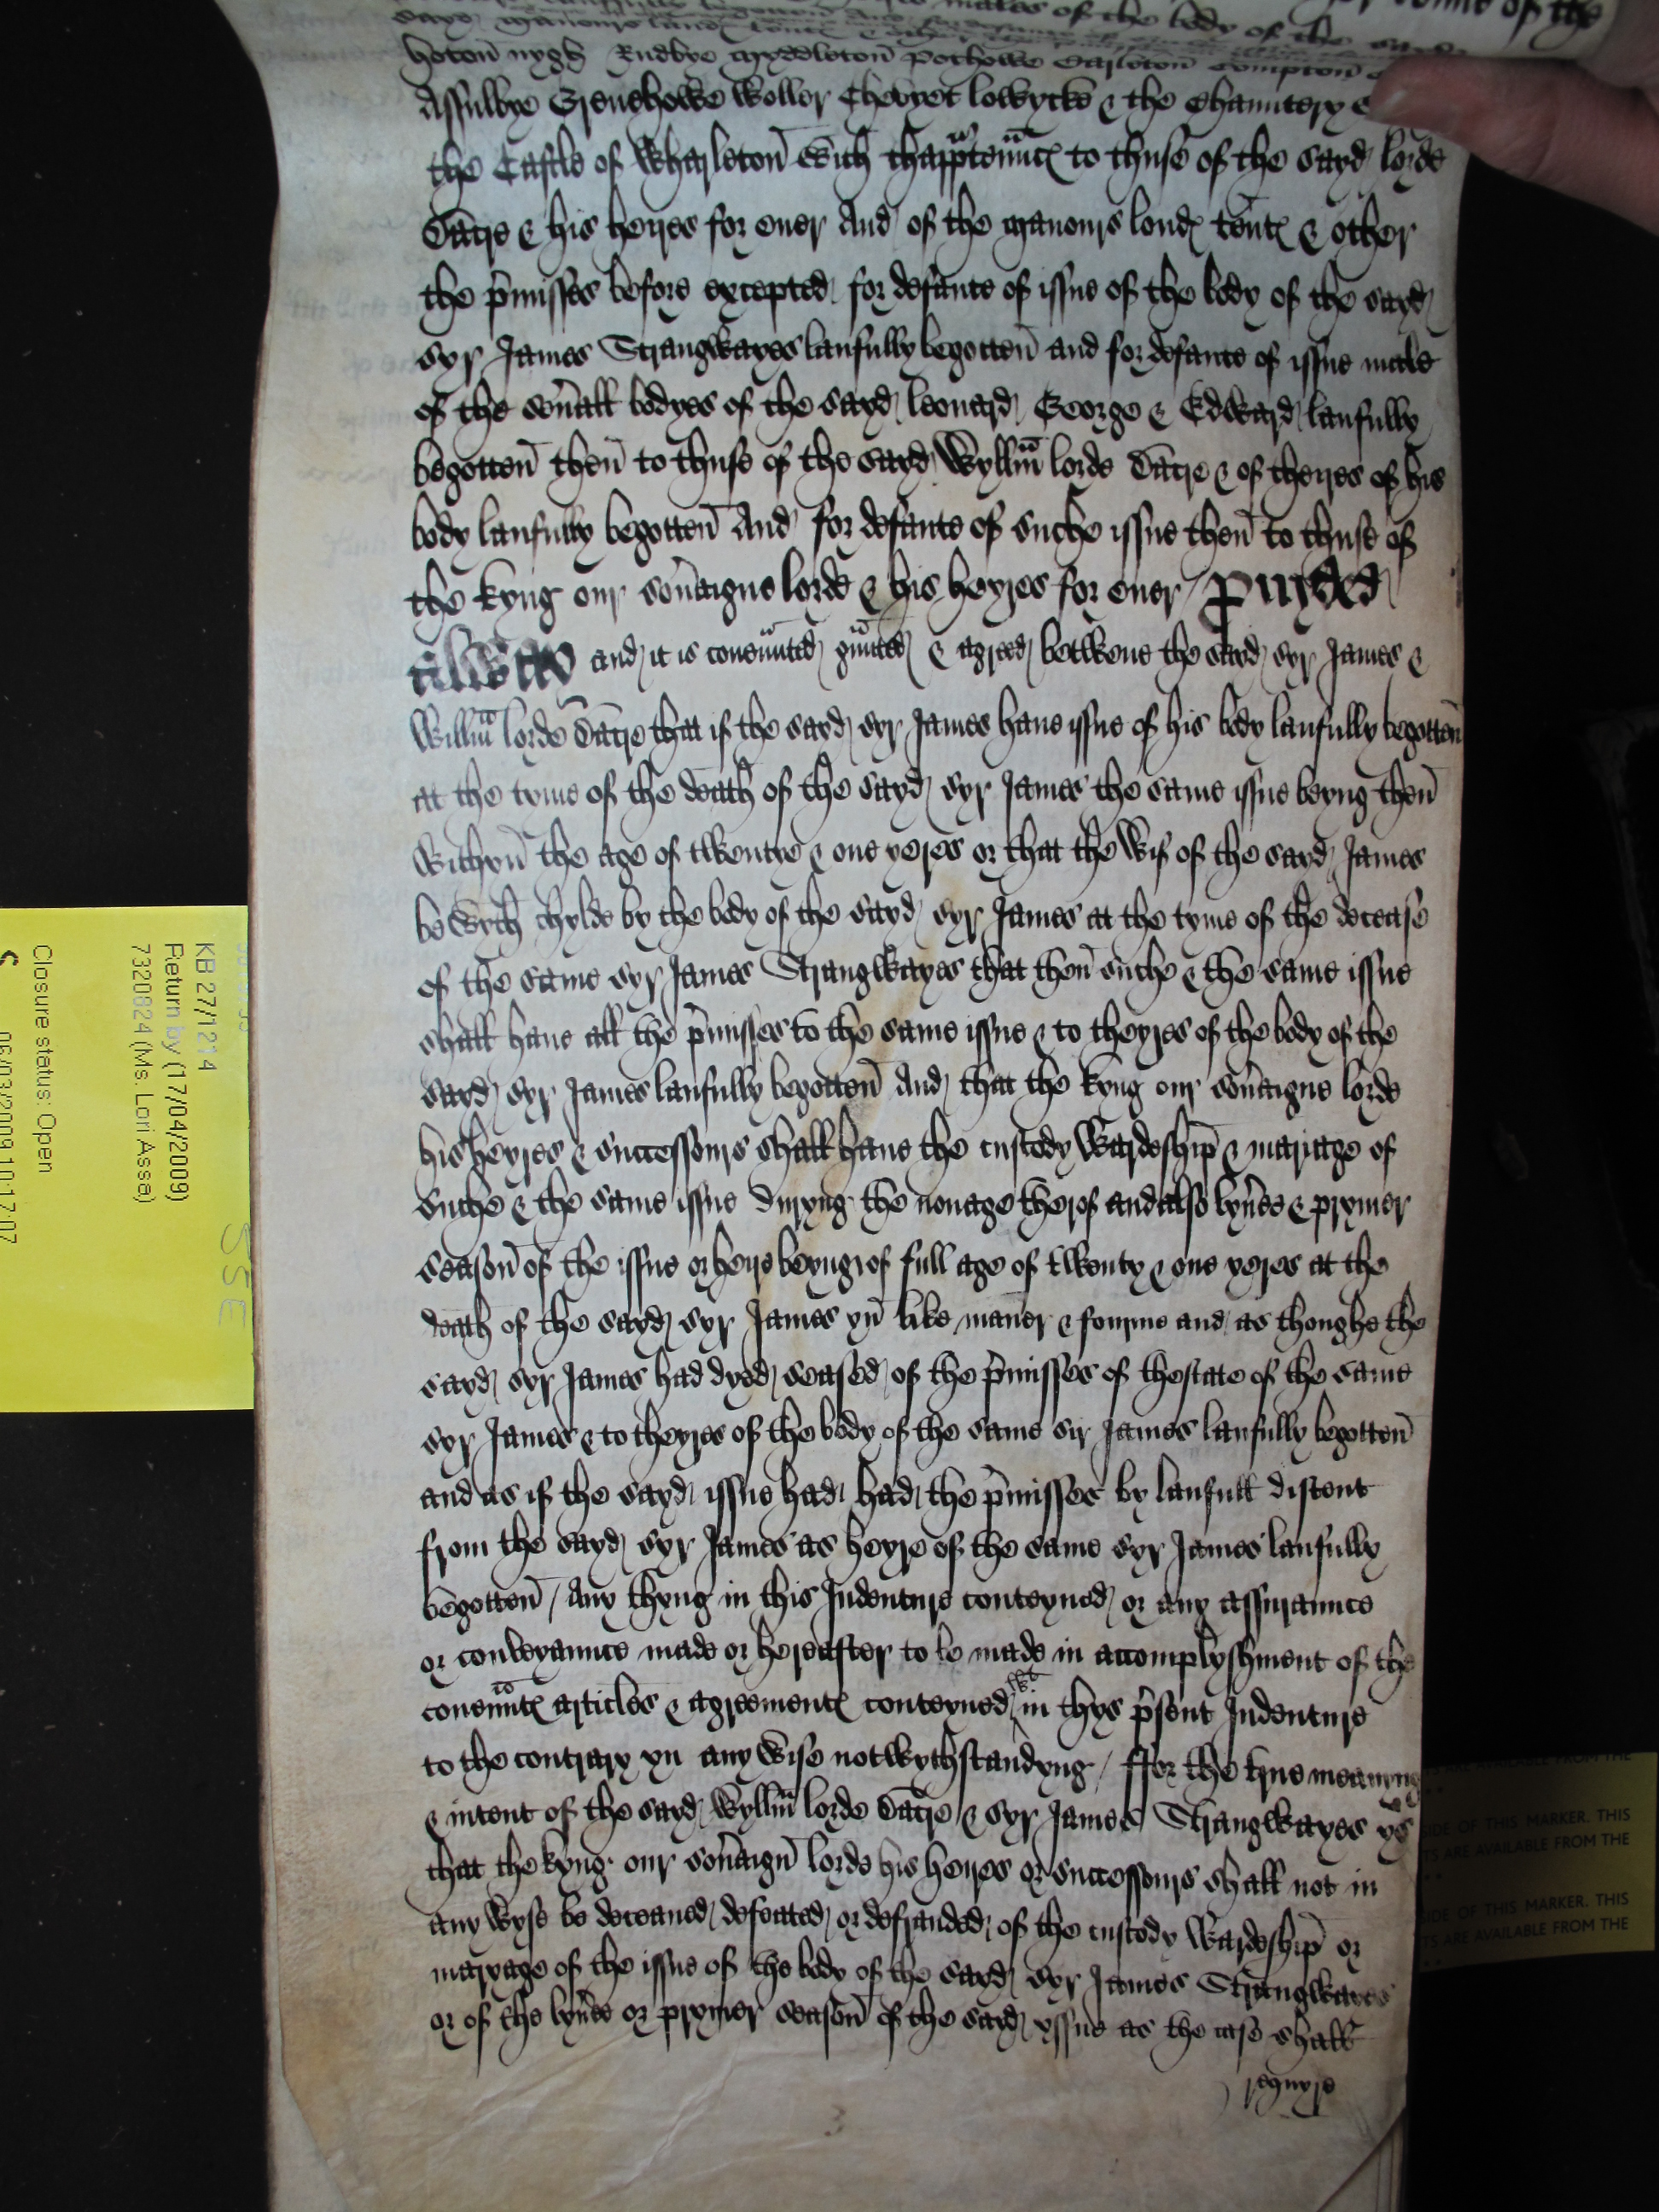 males of the body of the sayd
sayd manours land tent & other
hoton nygh Rudbye Myddleton Pothowe Carleton Compton
Assulbye Grenehowe Woller Chevyet lowyck & the Chauntery
the Castle of Wharleton With thapptennc to thuse of the sayd lorde
Dacre & his heyres for euer And of the manours lond tent & other
the pmisses before excepted for defaute of issue of the body of the sayd
syr James Strangwayes laufully begotten and for defaute of issue male
of the seuall bodyes of the sayd leonard George & Edward laufully
begotten then to thuse of the sayd Wyllm lorde Dacre & of theyres of his
body laufully begotten And for defaute of suche issue then to thuse of
the kyng our souaigne lorde & his heyres for euer / puided
allweys and it is couennted gunted & agreed betwene the sayd syr James &
Willm lorde Dacre that if the sayd syr James haue issue of his body laufully begotten
at the tyme of the death of the sayd syr James the same issue beyng then
Withyn the age of twentye & one yeres or that the Wif of the sayd James
be wyth chylde by the body of the sayd syr James at the tyme of the decease
of the same syr James Strangwayes that then suche & the same issue
shall haue all the pmisses to the same issue & to theyres of the body of the
sayd syr James laufully begotten And that the kyng our souaigne lorde
his heyres & successours shall haue the custody Wardeship & mariage of
suche & the same issue duryng the nonage therof and also lyuee & prymer
season of the issue or heyre beyng of full age of twenty & one yeres at the
death of the sayd syr James yn like maner & fourme and as thoughe the
sayd syr James had dyed seased of the pmisses of thestate of the same
syr James & to theyres of the body of the same sir James laufully begotten
and as if the sayd issue had had the pmisses by laufull discent
from the sayd syr James as heyre of the same syr James laufully
begotten / Any thyng in this Indenture conteyned or any assurannce
or conveyannce made or hereafter to be made in accomplyshment of the
couennt articles & agreement conteyned in thys psent Indenture
to the contrary yn any Wise notwythstandyng / ffor the true meanyng
& intent of the sayd Wyllm lorde Dacre & syr James Strangwayes ys
that the kyng our souaign lorde his heyres or successours shall not in
any wyse be deceaued defeated or defrauded of the custody Wardeship or
maryage of the issue of the body of the sayd syr James Strangwayes
or of the lyuee or prymer season of the sayd yssue as the case shall
requyre
KB 27/1214
Return by (17/04/2009)
7320824 (Ms. Lori Asse)
Closure status: Open
06/03/2009 10:17:07
SSE
S ARE AVAILABLE FROM THE
SIDE OF THIS MARKER. THIS
TS ARE AVAILABLE FROM THE
SIDE OF THIS MARKER. THIS
TS ARE AVAILABLE FROM THE